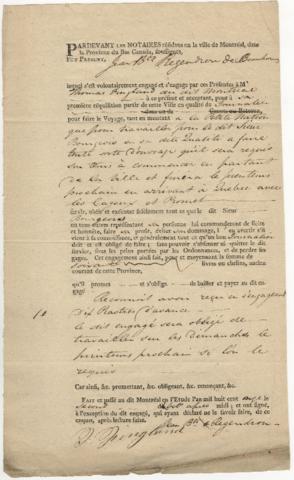 PARDEVANT LES NOTAIRES résidens en la ville de Montréal, dans
la Province du Bas Canada, soussignés,
FUT PRESENT, Jean Bte
lequel s'est volontairement engagé et s'engage par ces Présentes à Mr
Thomas du dit Montréal
à ce présent et acceptant, pour à sa
première réquisition partir de cette Ville en qualité de
pour faire le Voyage, tant en montant à la Petite Nation
que pour travailler pour le dit Sieur
Bourgeois en dite qualité a faire
toute sorte d'ouvrage qu'il sera requis
a commencer en partant
de cette Ville et finira le printems
prochain en arrivant à Québec avec
les Cajeux et Promet
servir, obéir et exécuter fidèlement tout ce que le dit Sieur
Bourgeois
ou tous autres représentant sa personne lui commanderont de licite
et honnête, faire son profit, éviter son dommage, l'en avertir s'il
vient à sa connoissance, et généralement tout ce qu'un bon
doit et est obligé de faire; sans pouvoir s'absenter ni quitter le dit
service, sous les peines portées par les Ordonnances, et de perdre ses
gages. Cet engagement ainsi fait, pour et moyennant la somme de
livres ou chelins, ancien
courant de cette Province,
qu'il promet et s'oblige de bailler et payer au dit en-
gagé
Reconnoit avoir reçu en s'engageant
10 Dix Piastres d'avance
le dit engagé sera obligé de
travailler les Dimanches le
printems prochain se lon le
requis
Car ainsi, &c. promettant, &c. obligeant, &c. renonçant, &c.
FAIT et passé au dit Montréal en l'Etude l'an mil huit cent onze le
second après midi; et ont signé,
à l'exception du dit engagé, qui ayant déclaré ne le savoir faire, de ce
enquis, après lecture faite.
Jean Bte